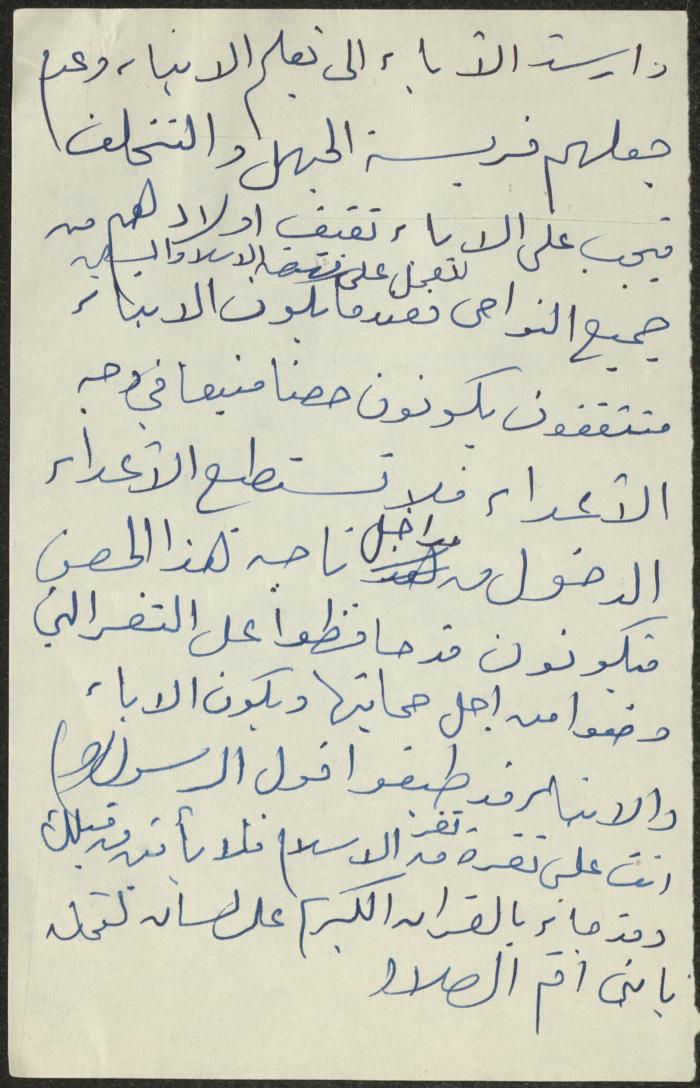 دارسة الآباء الى تعلم الابناء وعدم
جعلهم فريسة الجهل والتخلف
فيجب على الاباء تقيف اولادهم من
لتعمل على الاسلام والمسلمين
جميع النواحي فعندما يكون الابناء
متثقفون يكونون حصنا منيعا في وجه
الأعداء فلا تستطع الأعداء
الدخول من مداخل ناحية هذا الحصن
فيكونون قد حافظوا على الثغر التي
وضعوا من اجل حمايتها ويكون الاباء
والابناء قد طبقوا قول الرسول (ص)
انت على ثغرة من ثغر الاسلام فلا يأتين من قبلك
وقد جاء بالقران الكريم على لسان لقمان
يا بني اقم الصلاة